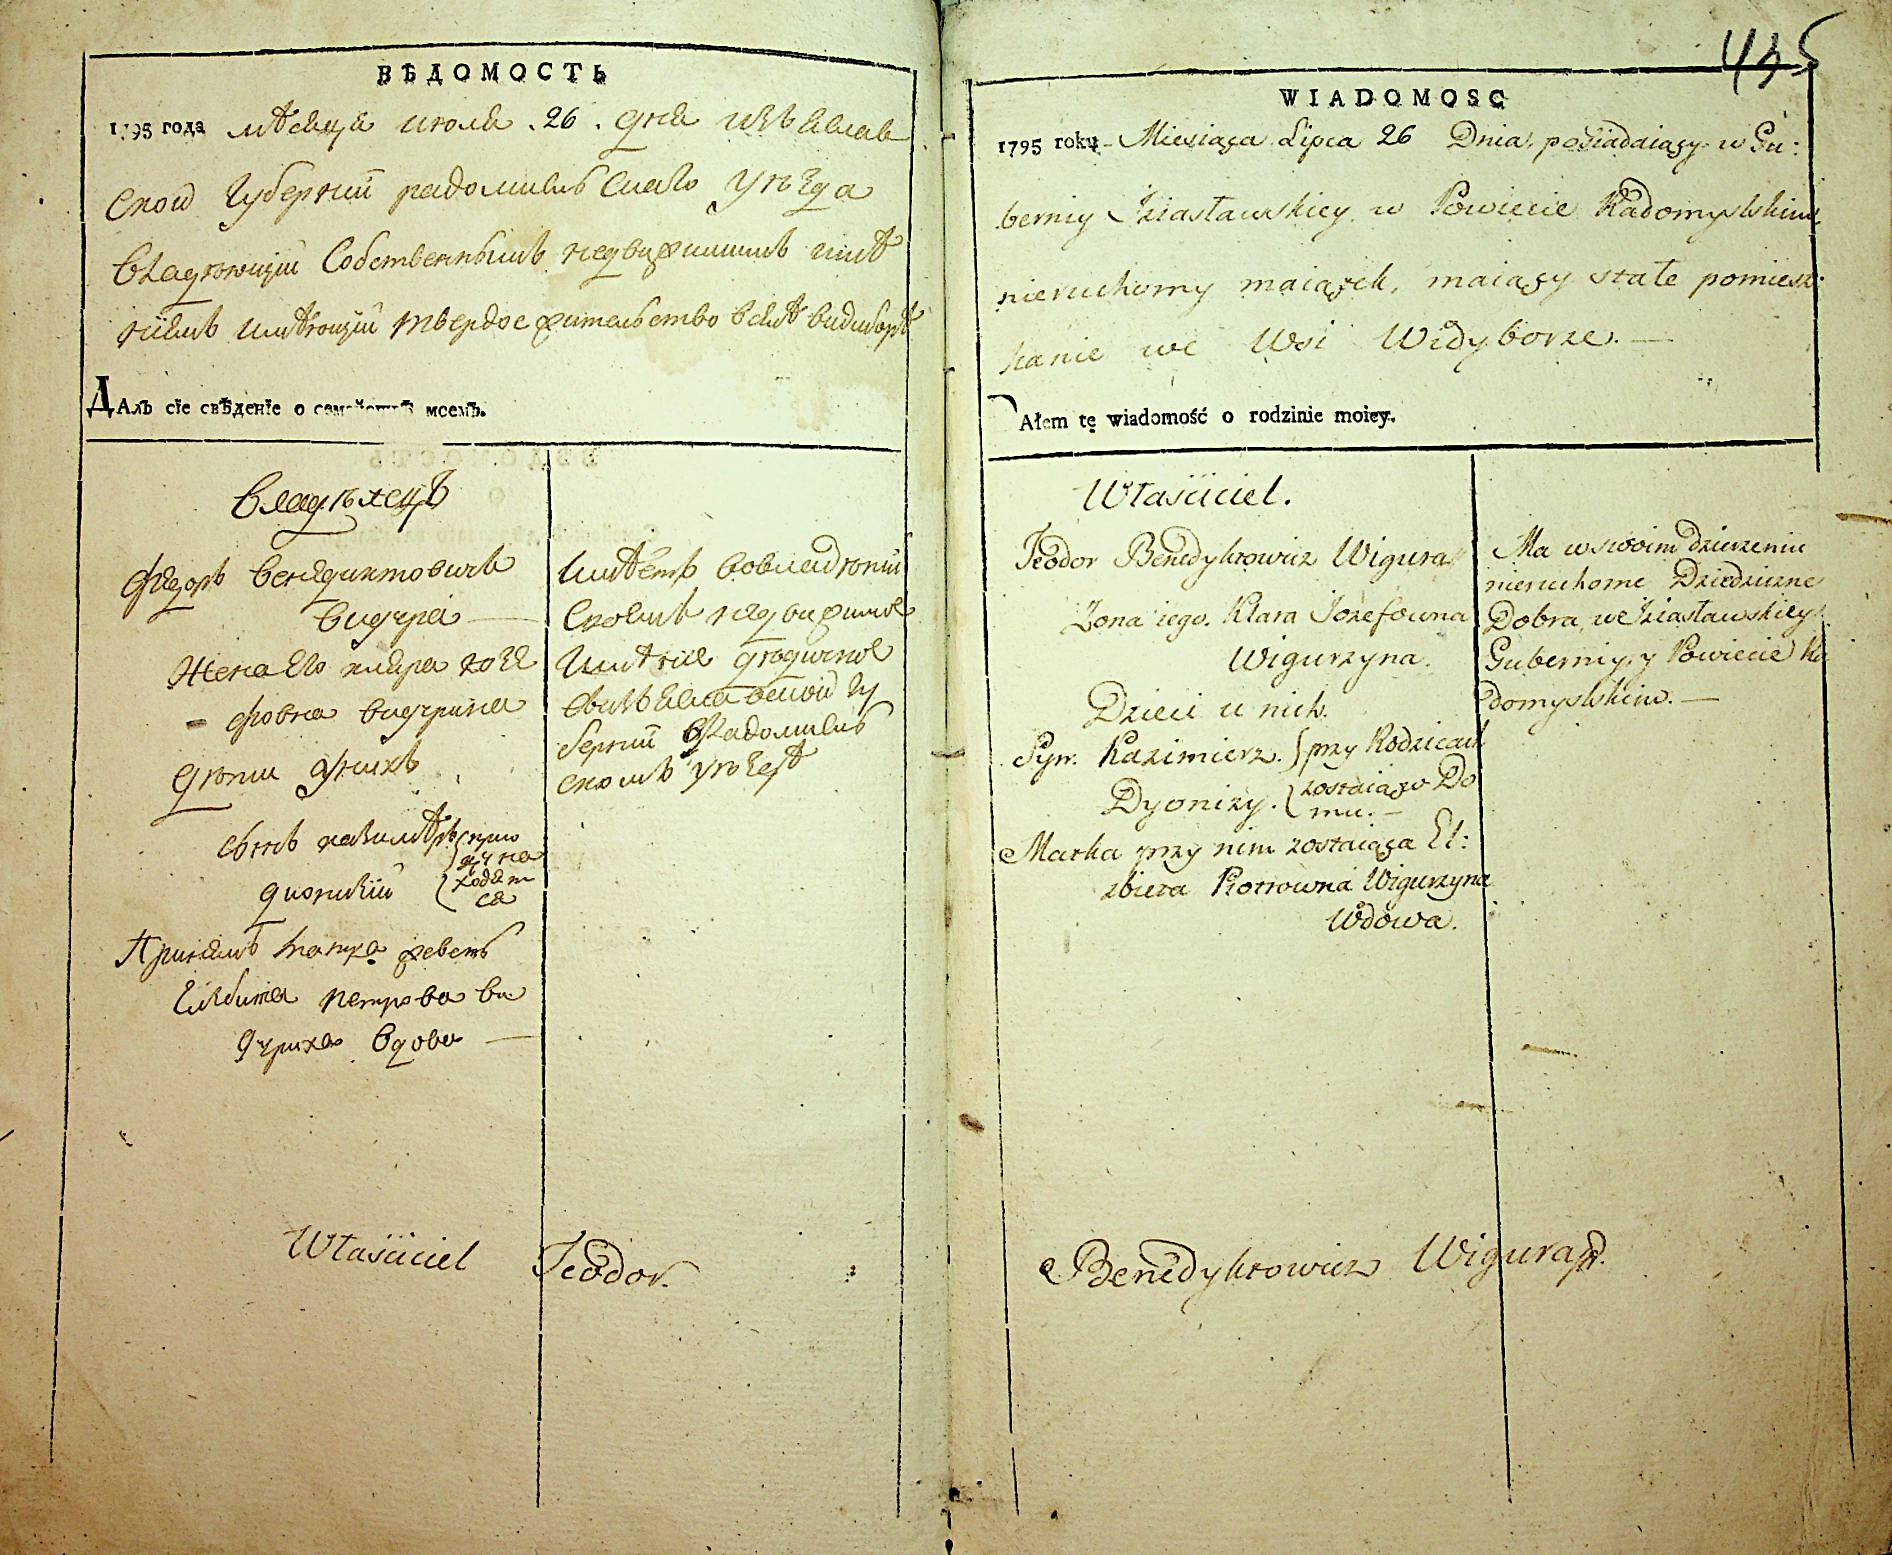 ВѢДОМОСТЬ
1795 года мѣсяца июля . 26 . дня изъяслав
ской губернии радомысльскаго уѣзда
владѣющий собственнымъ недвижимымъ имѣ
ниемъ имѣющий твердое жительство в селѣ видыборѣ
ДАлъ сїе свѣденїе о семействѣ моемъ.
владѣлецъ
Федоръ венедиктовичъ
вигура
жена его клара юзе
фовна вигурина
дѣти у нихъ
сынъ казимѣръ при
отцу на
дионизий ходят
ся
При немъ матка живетъ
елзбита петрова ви
гуриха вдова
имѣетъ во владѣнии
своемъ недвижимое
имѣние дѣдичное
в изяславской гу
бернии врадомысль
скомъ уѣздѣ
Właściciel Teodor.
435
WIADOMOSC
1795 roku Miesiąca Lipca 26 Dnia, posiadaiący w Gu:
berniy Iziasławskiey w Powiecie Radomyslskim,
nieruchomy maiątek, maiący stałe pomiesz:
kanie we Wsi Widyborze. —
Ałem tę wiadomość o rodzinie moiey.
Właściciel.
Teodor Benedyktowicz Wigura
Żona iego. Klara Jozefowna
Wigurzyna.
Dzieci u nich.
Syn. Kazimierz. przy Rodzicach
Dyonizy. zostaią w Do
mu. —
Matka przy nim zostaiąca El:
zbieta Piotrowna Wigurzyna
Wdowa.
Ma w swoim dzierzeniu
nieruchome Dziedziczne
Dobra, we Iziasławskiey
Guberniy, y Powiecie Ra
domyslskim. —
Benedyktowicz Wigura